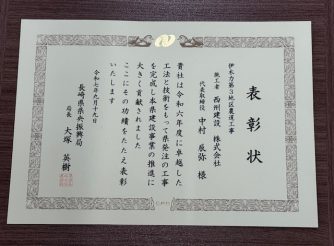 表彰状
伊木力第3地区農道工事
施工者 西州建設 株式会社
代表取締役 中村 辰弥 様
貴社は令和六年度に卓越した
工法と技術をもって県発注の工事
を完成し本県建設事業の推進に
大きく貢献されました
ここにその功績をたたえ表彰
いたします
令和七年九月十九日
長崎県県央振興局
局長 大塚 英樹